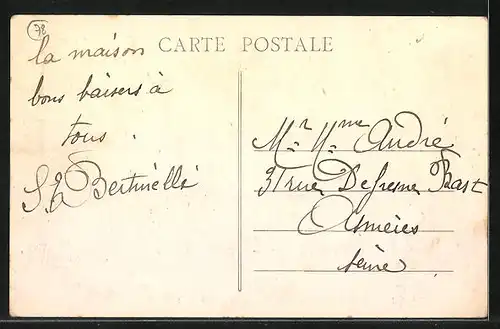 78
CARTE POSTALE
la maison
bons baisers à
tous.
Bertinelli
Mr Mme André
31 rue Defresne Bast
Asnières
Seine